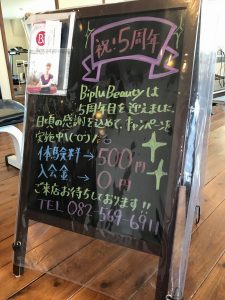 祝!5周年
BipluBeautyは
5周年目を迎えました。
日頃の感謝を込めて、キャンペーンを
実施中\(^o^)/
体験料→500円
入会金→0円
ご来店お待ちしております!!
TEL 082-569-6911